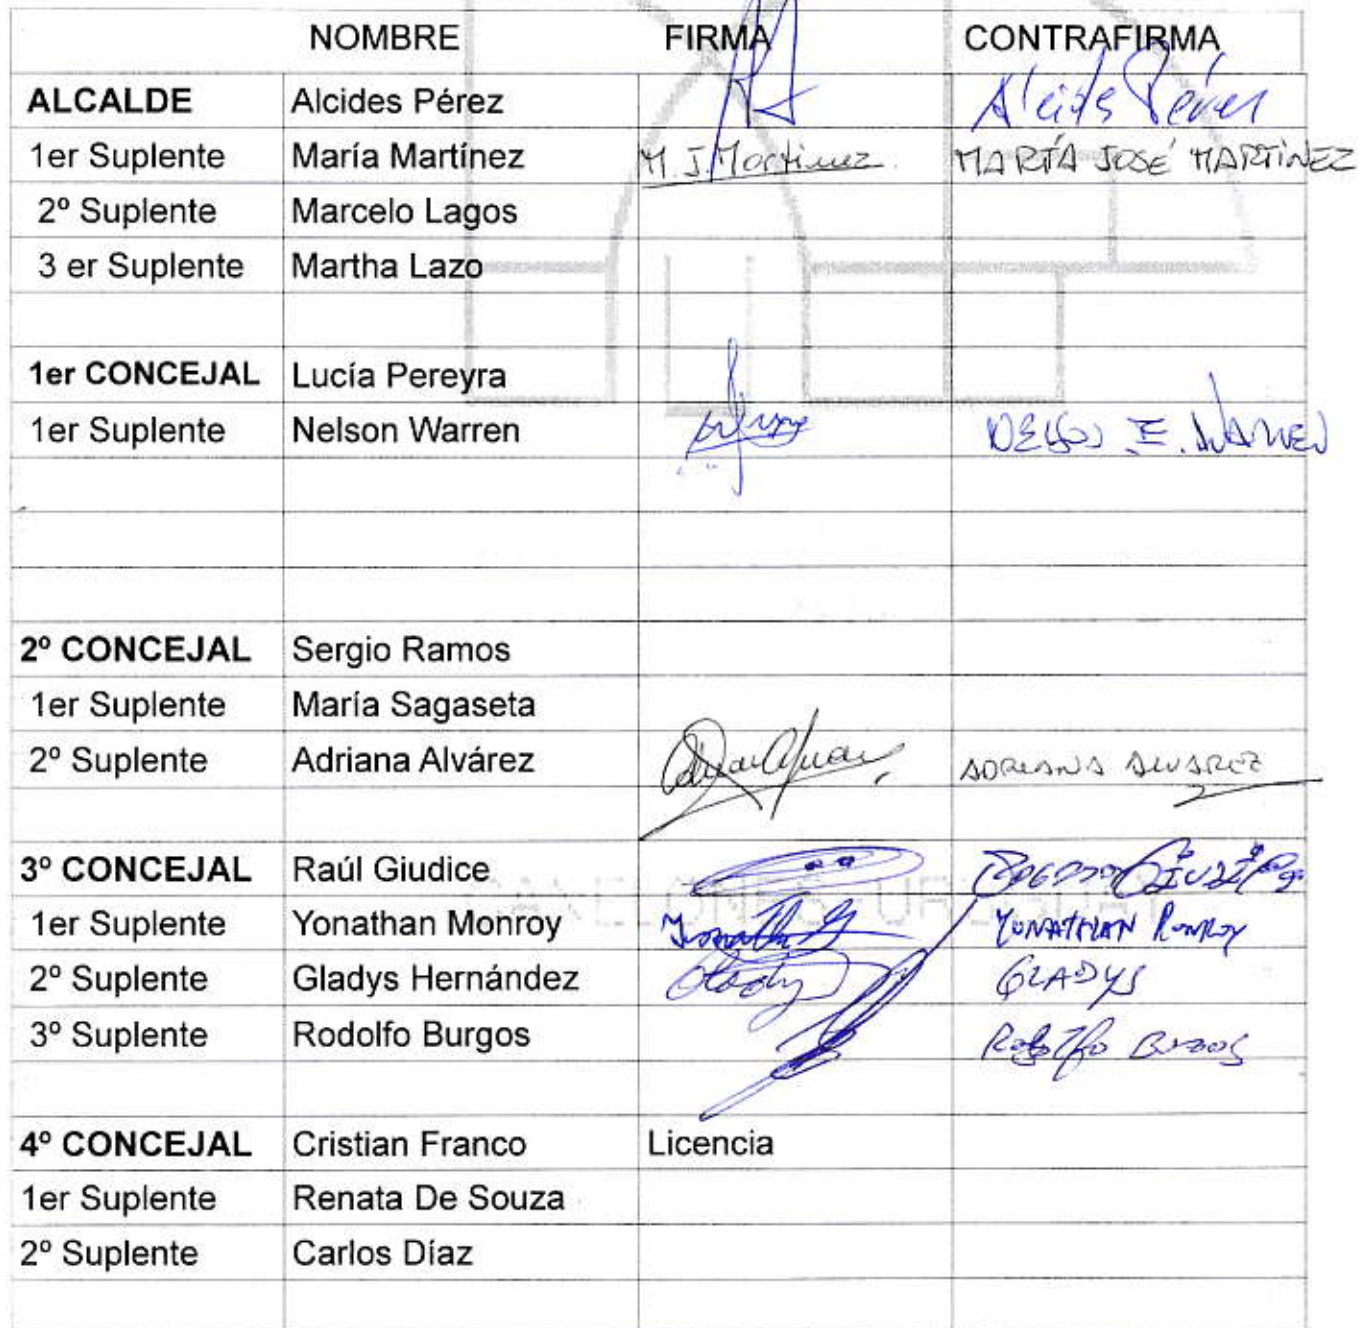 NOMBRE FIRMA CONTRAFIRMA
ALCALDE Alcides Pérez Alcides Pérez
1er Suplente María Martínez M. J. Martinez. MARÍA JOSÉ MARTÍNEZ
2º Suplente Marcelo Lagos
3 er Suplente Martha Lazo
1er CONCEJAL Lucía Pereyra
1er Suplente Nelson Warren E.
2º CONCEJAL Sergio Ramos
1er Suplente María Sagaseta
2º Suplente Adriana Alvárez ADRIANA ALVAREZ
3º CONCEJAL Raúl Giudice
CANELONES - URUGUAY
1er Suplente Yonathan Monroy YONATHAN MONROY
2º Suplente Gladys Hernández Gladys GLADYS
3º Suplente Rodolfo Burgos Rodolfo Burgos
4º CONCEJAL Cristian Franco Licencia
1er Suplente Renata De Souza
2º Suplente Carlos Díaz